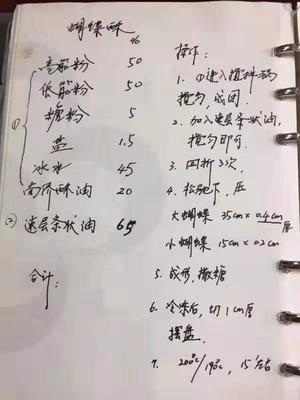 蝴蝶酥
%
① 高筋粉 50
低筋粉 50
糖粉 5
盐 1.5
冰水 45
南侨酥油 20
② 速层条状油 65
合计:
操作:
1. ①进入搅拌
搅匀,成团.
2. 加入速层条状油,
搅匀即可.
3. 四折3次,
4. 松弛下,压
大蝴蝶 35cm×0.4cm厚
小蝴蝶 15cm×0.2cm
5. 成形,撒糖
6. 冷冻后,切1cm厚
摆盘.
7. 200℃/190℃, 15'左右